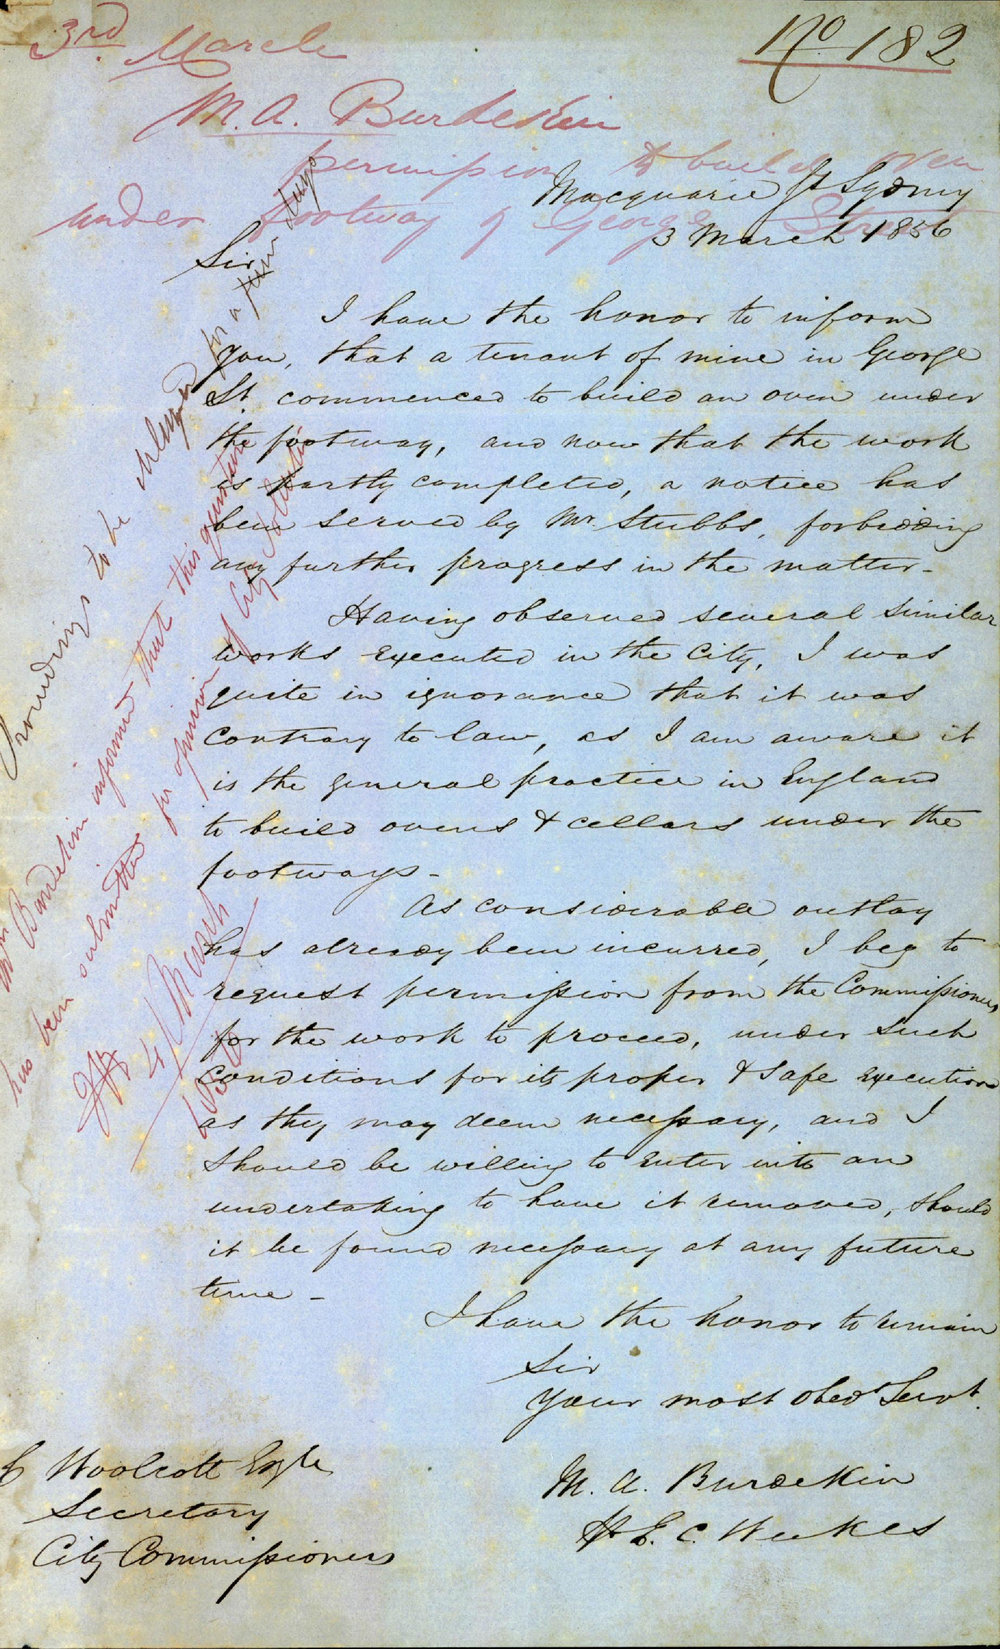 3rd March
No 182
M. A. Burdekin
permission to build oven
under footway of George Street
Macquarie St Sydney
3 March 1856
Sir
I have the honor to inform
you, that a tenant of mine in George
St. commenced to build an oven under
the footway, and now that the work
is partly completed, a notice has
been served by Mr Stubbs, forbidding
any further progress in the matter -
Having observed several similar
works executed in the City, I was
quite in ignorance that it was
contrary to law, as I am aware it
is the general practice in England
to build ovens & cellars under the
footways -
As considerable outlay
has already been incurred, I beg to
request permission from the Commissioners
for the work to proceed, under such
conditions for its proper & safe execution
as they may deem necessary, and I
should be willing to enter into an
undertaking to have it removed, should
it be found necessary at any future
time -
I have the honor to remain
Sir
Your most obedt Servt.
M. A. Burdekin
H. E. C. Weekes
C Woolcott Esqre
Secretary
City Commissioners
Proceedings to be delayed for a few days
Mrs Burdekin informed that this question
has been submitted for opinion of City Solicitor
4 March
1856